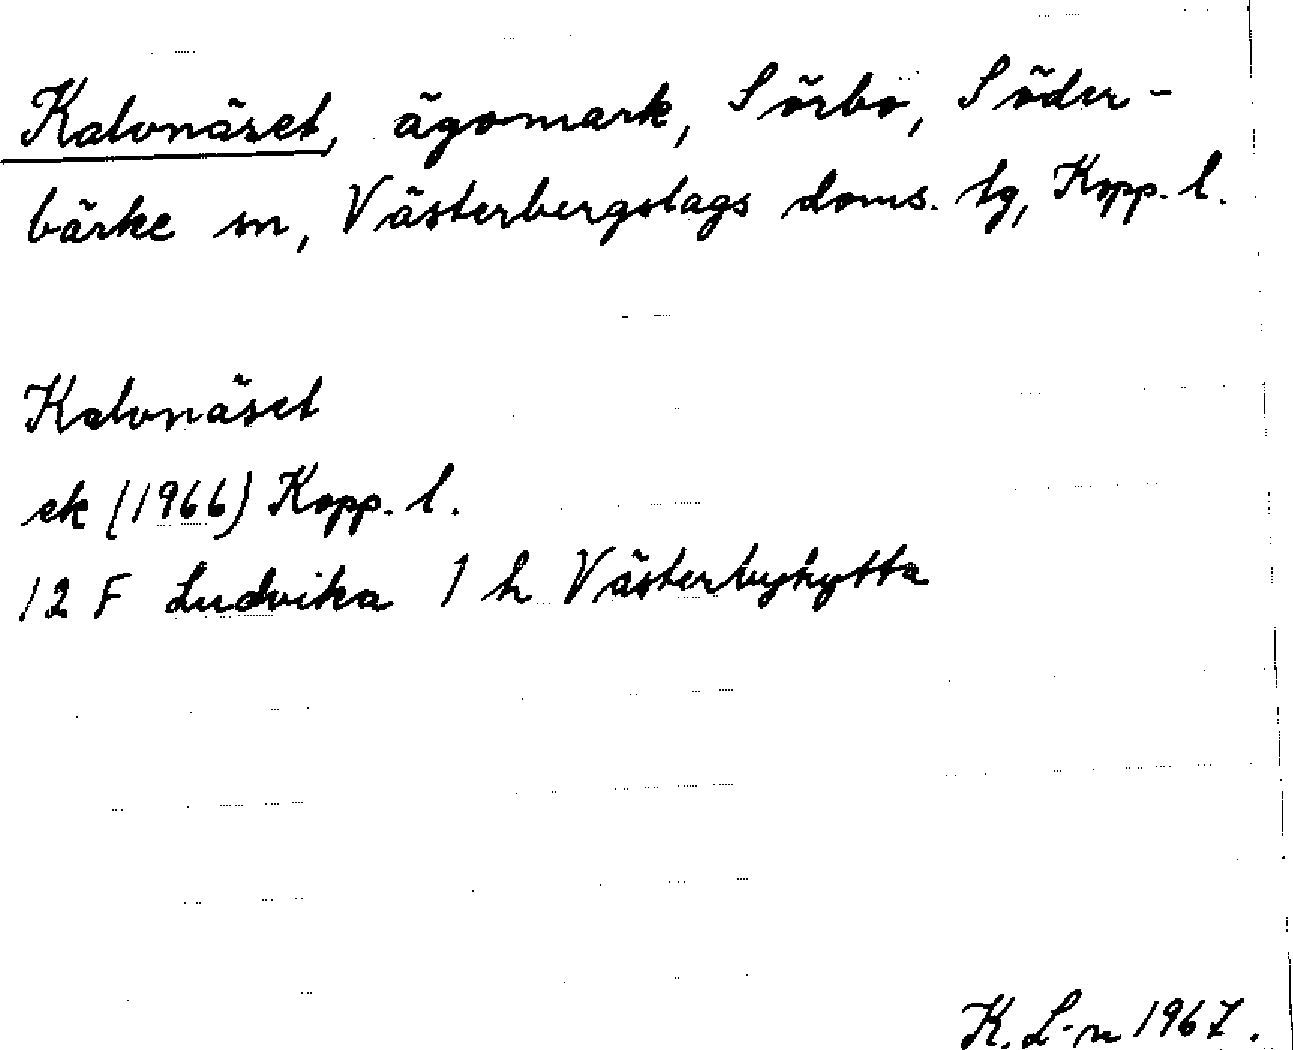 Kalvnäset, ägomark, Sörbo, Söder-
bärke sn, Västerbergslags doms. tg, Kopp. l.
Kalvnäset
ek (1966) Kopp. l.
12 F Ludvika 1 h Västerbyhytta
K. L-n 1967.